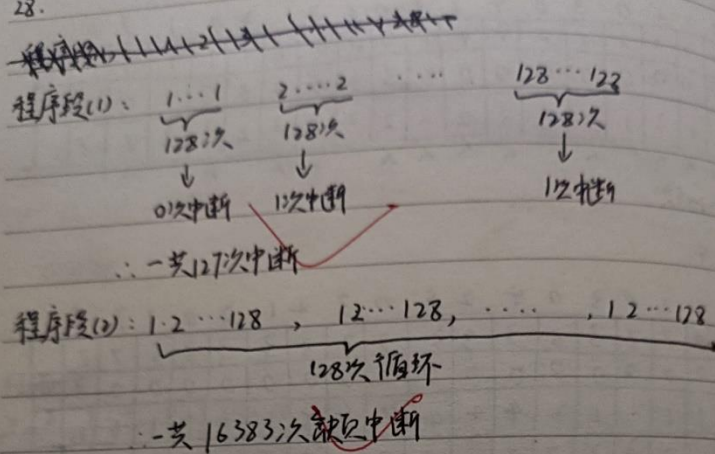 28.
程序段(1): 1···1 2····2 ···· 128···128
128次 128次 128次
↓ ↓ ↓
0次中断 1次中断 1次中断
∴一共127次中断
程序段(2): 1·2···128 , 12···128, ····· , 12···128
128次循环
∴一共16383次缺页中断